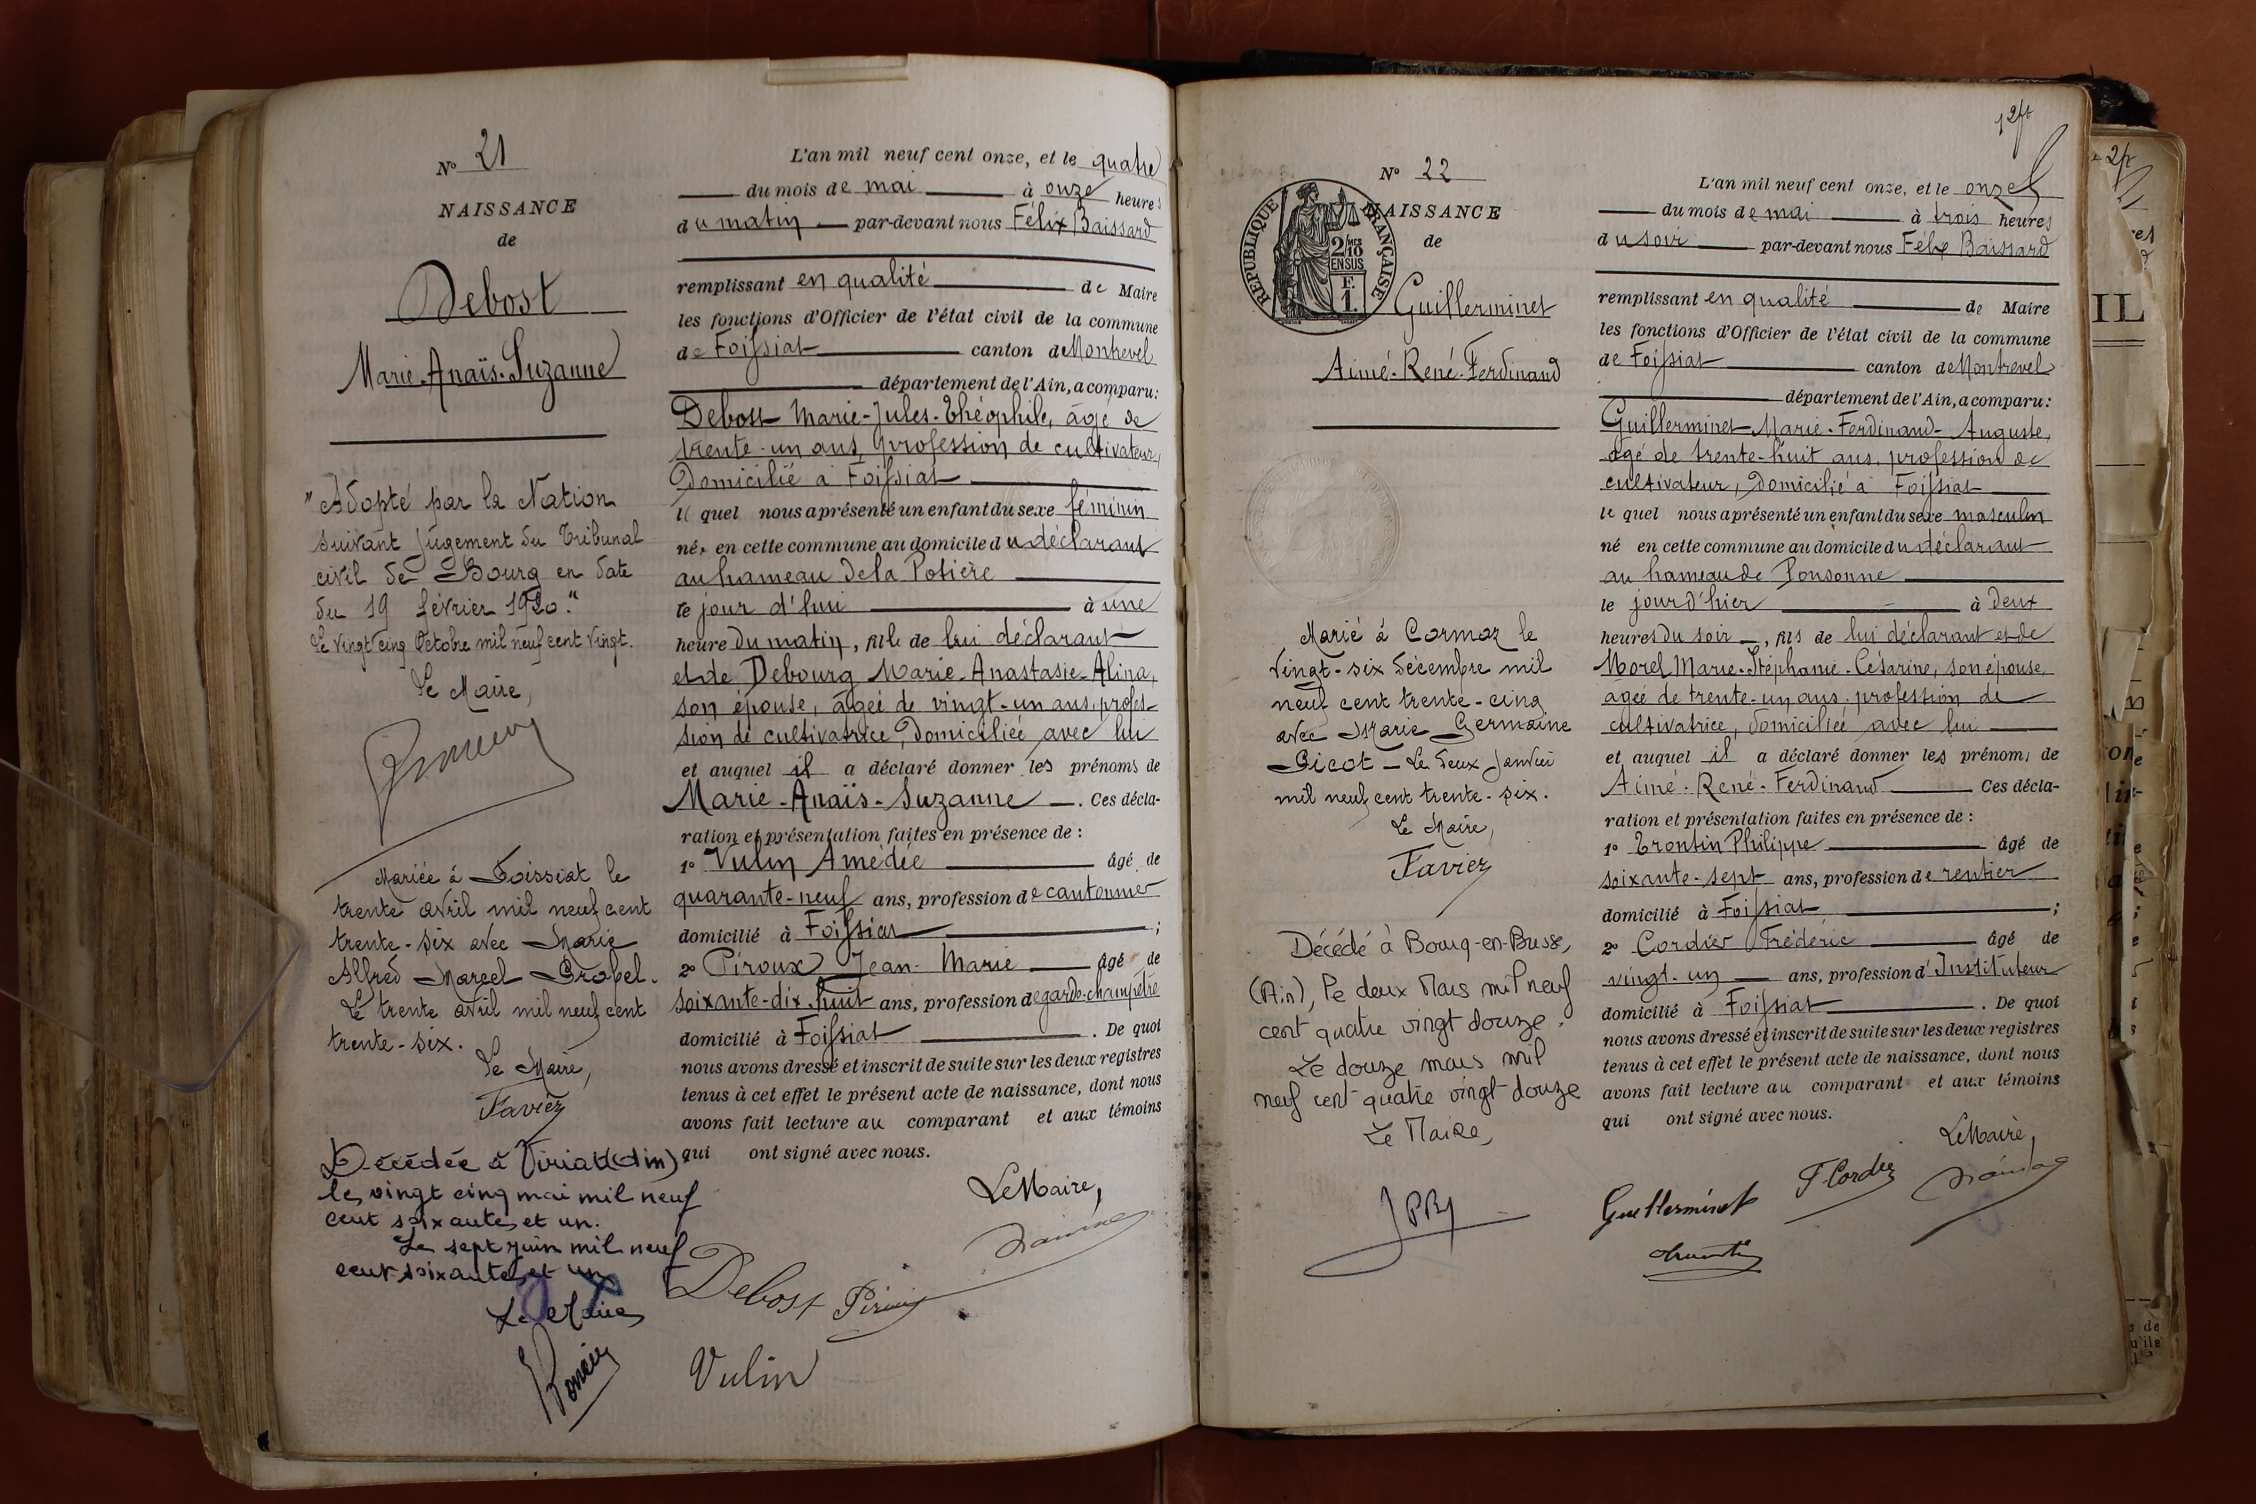 N° 21
NAISSANCE
de
Debost
Marie-Anaïs-Suzanne
"Adopté par la Nation
suivant jugement du Tribunal
civil de Bourg en date
du 19 février 1920."
Le vingt cinq Octobre mil neuf cent vingt.
Le Maire,
Mariée à Foissiat le
trente avril mil neuf cent
trente-six avec Marie
Alfred Marcel Grobel.
Le trente avril mil neuf cent
trente-six.
Le Maire,
Favier
Décédée à Viriat (Ain)
le vingt cinq mai mil neuf
cent soixante et un.
Le sept juin mil neuf
cent soixante et un
Le Maire
L'an mil neuf cent onze, et le quatre
du mois de mai à onze heures
du matin par-devant nous Félix Baissard
remplissant en qualité de Maire
les fonctions d'Officier de l'état civil de la commune
de Foissiat canton de Montrevel
département de l'Ain, a comparu:
Debost Marie-Jules-Théophile, âgé de
trente-un ans, profession de cultivateur,
domicilié à Foissiat
lequel nous a présenté un enfant du sexe féminin
née en cette commune au domicile du déclarant
au hameau de la Potière
le jour d'hui à une
heure du matin, fille de lui déclarant
et de Debourg Marie-Anastasie-Alina,
son épouse, âgée de vingt-un ans, profes-
sion de cultivatrice, domiciliée avec lui
et auquel il a déclaré donner les prénoms de
Marie-Anaïs-Suzanne. Ces décla-
ration et présentation faites en présence de :
1° Vulin Amédée âgé de
quarante-neuf ans, profession de cantonnier
domicilié à Foissiat ;
2° Piroux Jean-Marie âgé de
soixante-dix-huit ans, profession de garde-champêtre
domicilié à Foissiat. De quoi
nous avons dressé et inscrit de suite sur les deux registres
tenus à cet effet le présent acte de naissance, dont nous
avons fait lecture au comparant et aux témoins
qui ont signé avec nous.
Le Maire,
Debost
Vulin
N° 22
NAISSANCE
de
RÉPUBLIQUE FRANÇAISE
2/10
EN SUS
F.
1.
Guillerminet
Aimé-René-Ferdinand
Marié à Cormoz le
vingt-six décembre mil
neuf cent trente-cinq
avec Marie Germaine
Picot - Le deux Janvier
mil neuf cent trente-six.
Le Maire,
Favier
Décédé à Bourg-en-Bresse,
(Ain), le deux Mars mil neuf
cent quatre vingt douze.
Le douze mars mil
neuf cent quatre vingt douze
Le Maire,
L'an mil neuf cent onze, et le onze
du mois de mai à trois heures
du soir par-devant nous Félix Baissard
remplissant en qualité de Maire
les fonctions d'Officier de l'état civil de la commune
de Foissiat canton de Montrevel
département de l'Ain, a comparu:
Guillerminet Marie-Ferdinand-Auguste,
âgé de trente-huit ans, profession de
cultivateur, domicilié à Foissiat
lequel nous a présenté un enfant du sexe masculin
né en cette commune au domicile du déclarant
au hameau de Ponsonne
le jour d'hier à deux
heures du soir, fils de lui déclarant et de
Morel Marie-Stéphanie-Césarine, son épouse,
âgée de trente-un ans, profession de
cultivatrice, domiciliée avec lui
et auquel il a déclaré donner les prénoms de
Aimé-René-Ferdinand Ces décla-
ration et présentation faites en présence de :
1° Trontin Philippe âgé de
soixante-sept ans, profession de rentier
domicilié à Foissiat ;
2° Cordier Fréderic âgé de
vingt-un ans, profession d'Instituteur
domicilié à Foissiat. De quoi
nous avons dressé et inscrit de suite sur les deux registres
tenus à cet effet le présent acte de naissance, dont nous
avons fait lecture au comparant et aux témoins
qui ont signé avec nous.
Le Maire,
Guillerminet
F Cordier